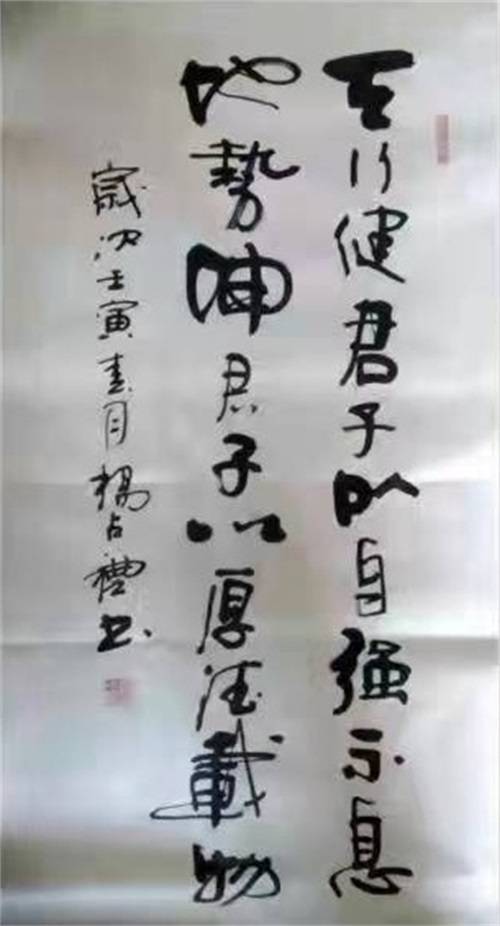 天行健君子以自强不息
地勢坤君子以厚德載物
歲次壬寅春月楊占禮书